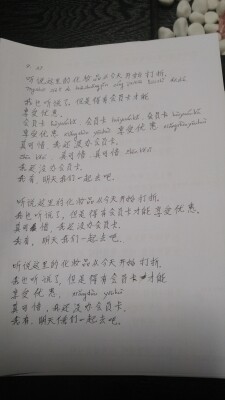 听说这里的化妆品从今天开始打折。
我也听说了,但是得有会员卡才能
享受优惠。
会员卡 huìyuánkǎ, 会员卡 huìyuánkǎ, 会员卡 huìyuánkǎ
享受优惠 xiǎngshòu yōuhuì 享受优惠 xiǎngshòu yōuhuì
真可惜,我还没办会员卡。
真可惜, 真可惜
我还没办会员卡。
我有,明天我们一起去吧。
听说这里的化妆品从今天开始打折。
我也听说了,但是得有会员卡才能享受优惠。
真可惜,我还没办会员卡。
我有,明天我们一起去吧。
听说这里的化妆品从今天开始打折。
我也听说了,但是得有会员卡才能
享受优惠。 xiǎngshòu yōuhuì
真可惜,我还没办会员卡。
我有,明天咱们一起去吧。